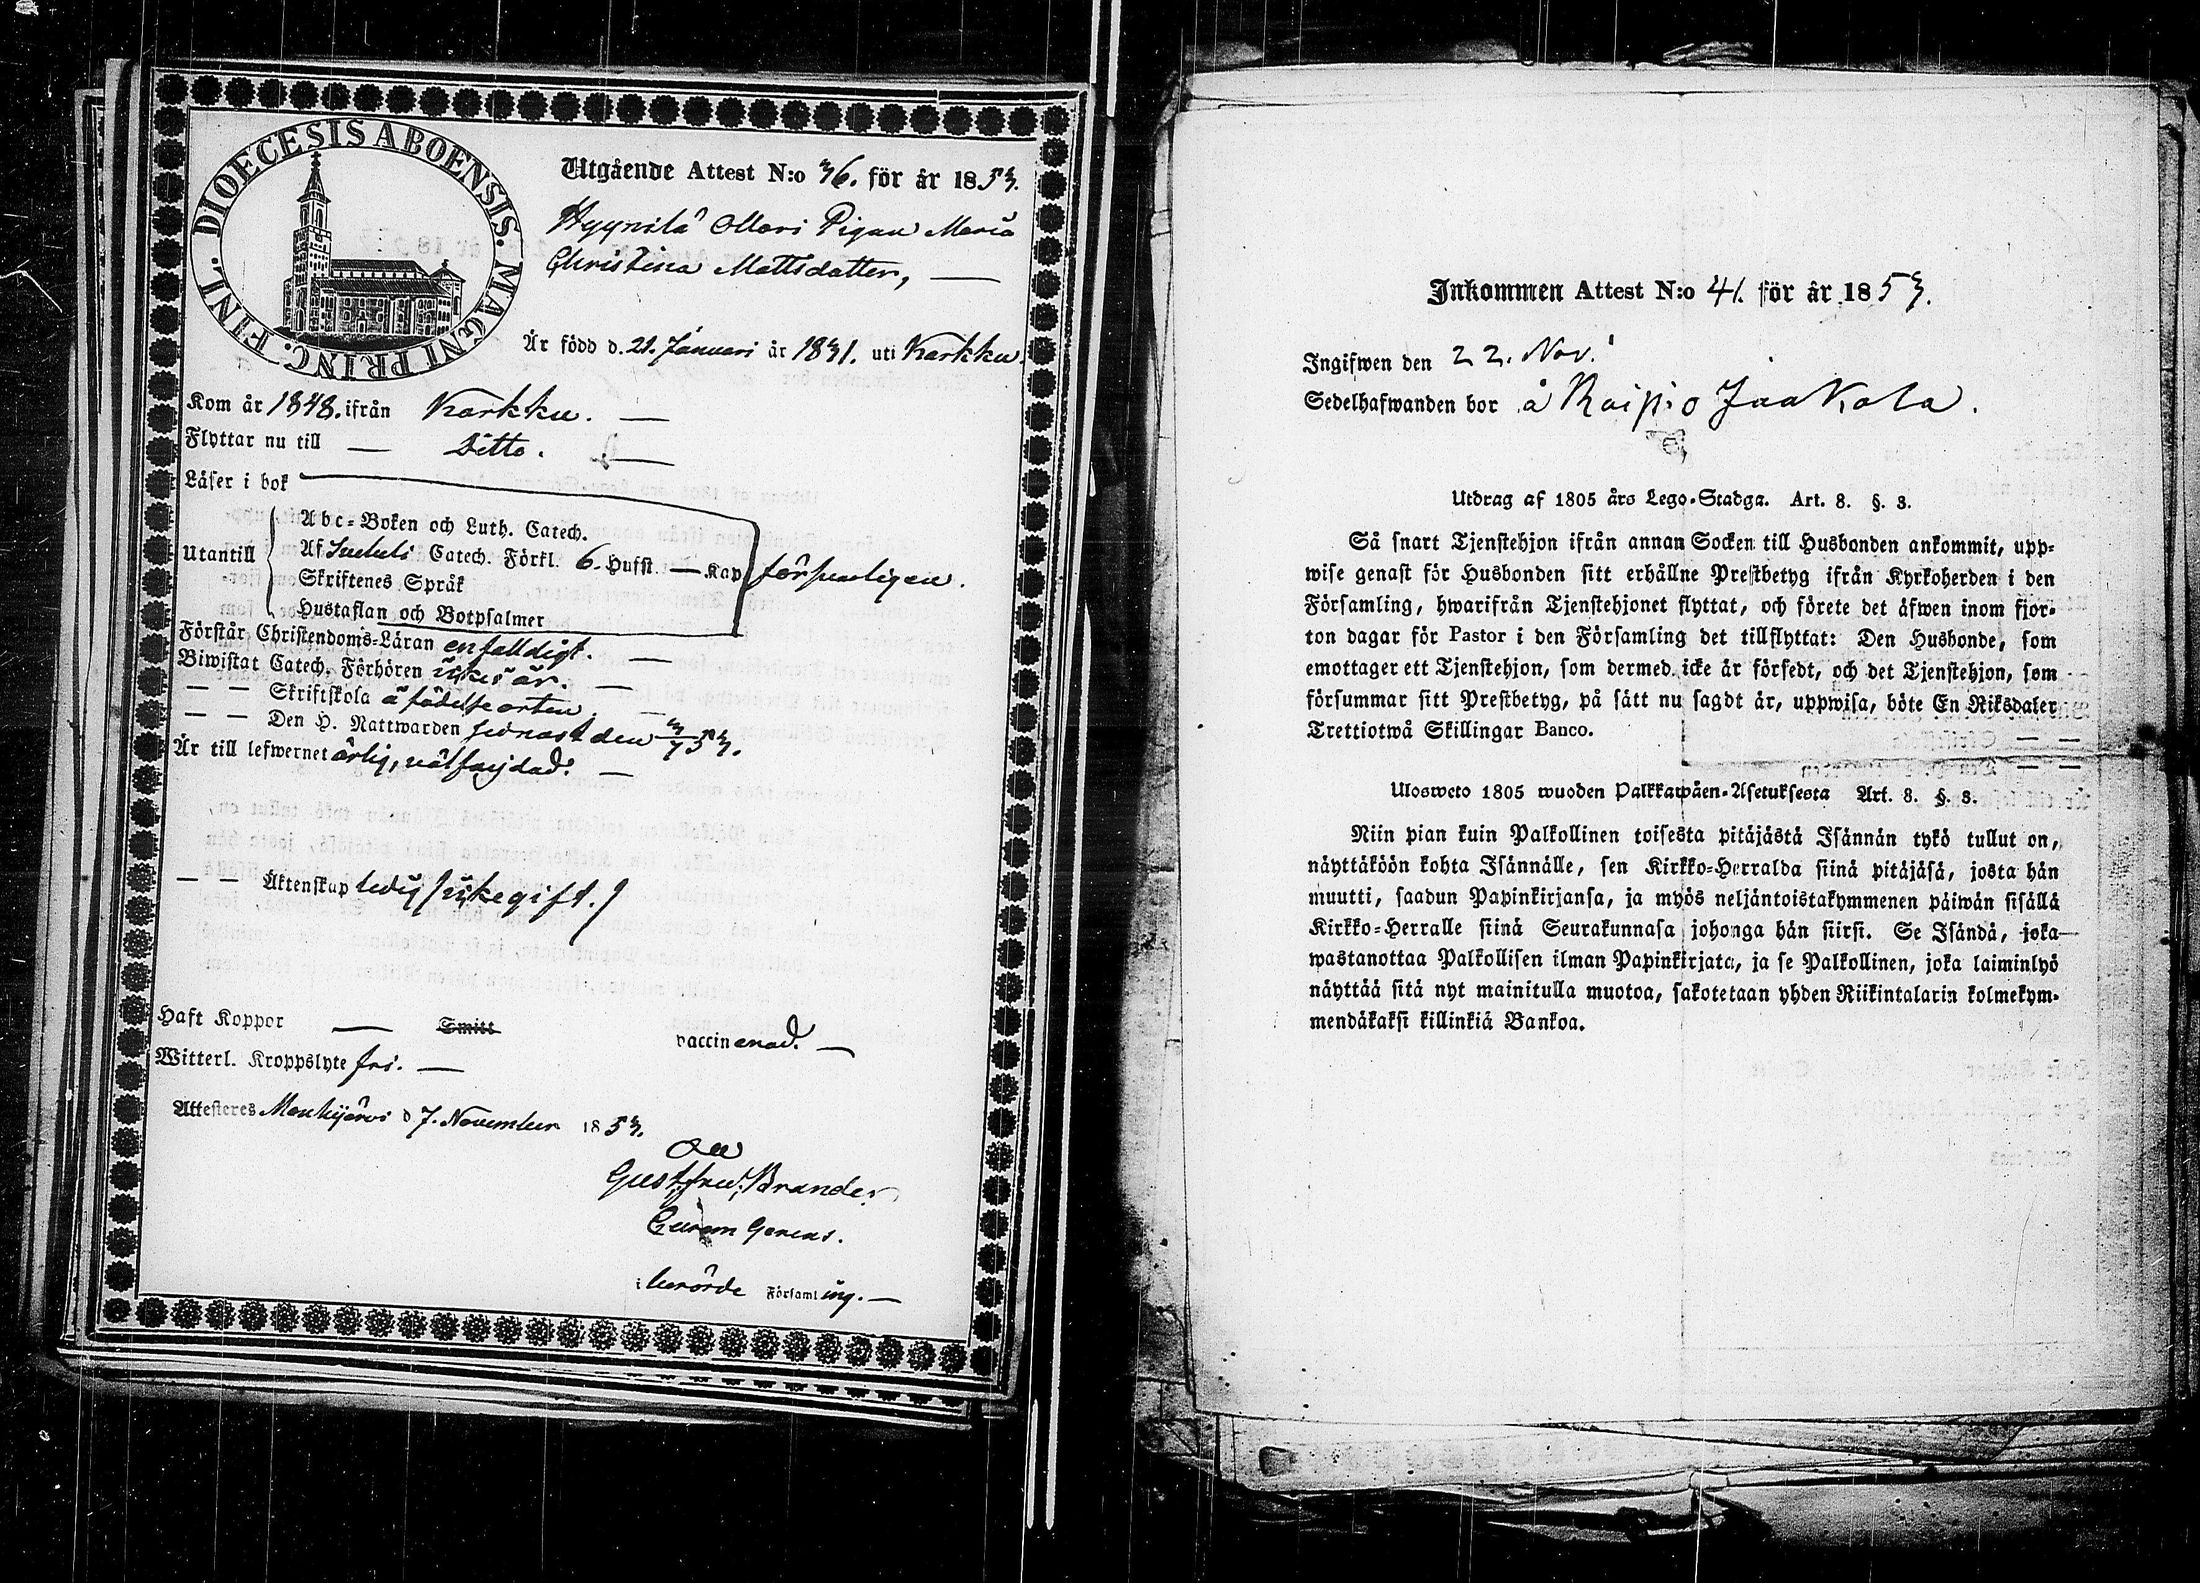 DIOECESIS ABOENSIS. MAGNI PRINC. FINL.
Utgående Attest N:o 36. för år 1853.
Pigan Maria
Christina Mattsdotter, —
Är född d. 21. Januari år 1831. uti Karkku.
Kom år 1848. ifrån Karkku. —
Flyttar nu till — Ditto. —
Läser i bok
Utantill
Abc-Boken och Luth. Catech.
Af Catech. Förkl. 6. Hufst. — Kap försvarligen.
Skriftenes Språk
Hustaflan och Botpsalmer
Förstår Christendoms-Läran enfalldigt. —
Biwistat Catech. Förhören i år. —
— — Skriftskola å födelseorten. —
— — Den H. Nattwarden senast den 3/7 53.
Är till lefwernet ärlig, välfrejdad. —
— — Äktenskap ledig
Haft Koppor — Smitt vaccinerad. —
Witterl. Kroppslyte fri. —
Attesteres Mouhijärvi d 7. November 1853.
Gust: Fred: Brander
Curam Gerens.
i berörde Församling. —
Inkommen Attest N:o 41. för år 1853.
Ingifwen den 22. Nov.
Sedelhafwanden bor å Raipio Jaakola.
Utdrag af 1805 års Lego-Stadga. Art. 8. §. 3.
Så snart Tjenstehjon ifrån annan Socken till Husbonden ankommit, upp-
wise genast för Husbonden sitt erhållne Prestbetyg ifrån Kyrkoherden i den
Församling, hwarifrån Tjenstehjonet flyttat, och förete det äfwen inom fjor-
ton dagar för Pastor i den Församling det tillflyttat: Den Husbonde, som
emottager ett Tjenstehjon, som dermed icke är försedt, och det Tjenstehjon, som
försummar sitt Prestbetyg, på sätt nu sagdt är, uppwisa, böte En Riksdaler
Trettiotwå Skillingar Banco.
Ulosweto 1805 wuoden Palkkawäen-Asetuksesta Art. 8. §. 3.
Niin pian kuin Palkollinen toisesta pitäjästä Isännän tykö tullut on,
näyttäköön kohta Isännälle, sen Kirkko-Herralda siinä pitäjäsä, josta hän
muutti, saadun Papinkirjansa, ja myös neljäntoistakymmenen päiwän sisällä
Kirkko-Herralle siinä Seurakunnasa johonga hän siirsi. Se Isändä, joka
wastanottaa Palkollisen ilman Papinkirjata, ja se Palkollinen, joka laiminlyö
näyttää sitä nyt mainitulla muotoa, sakotetaan yhden Riikintalarin kolmekym-
mendäkaksi killinkiä Bankoa.